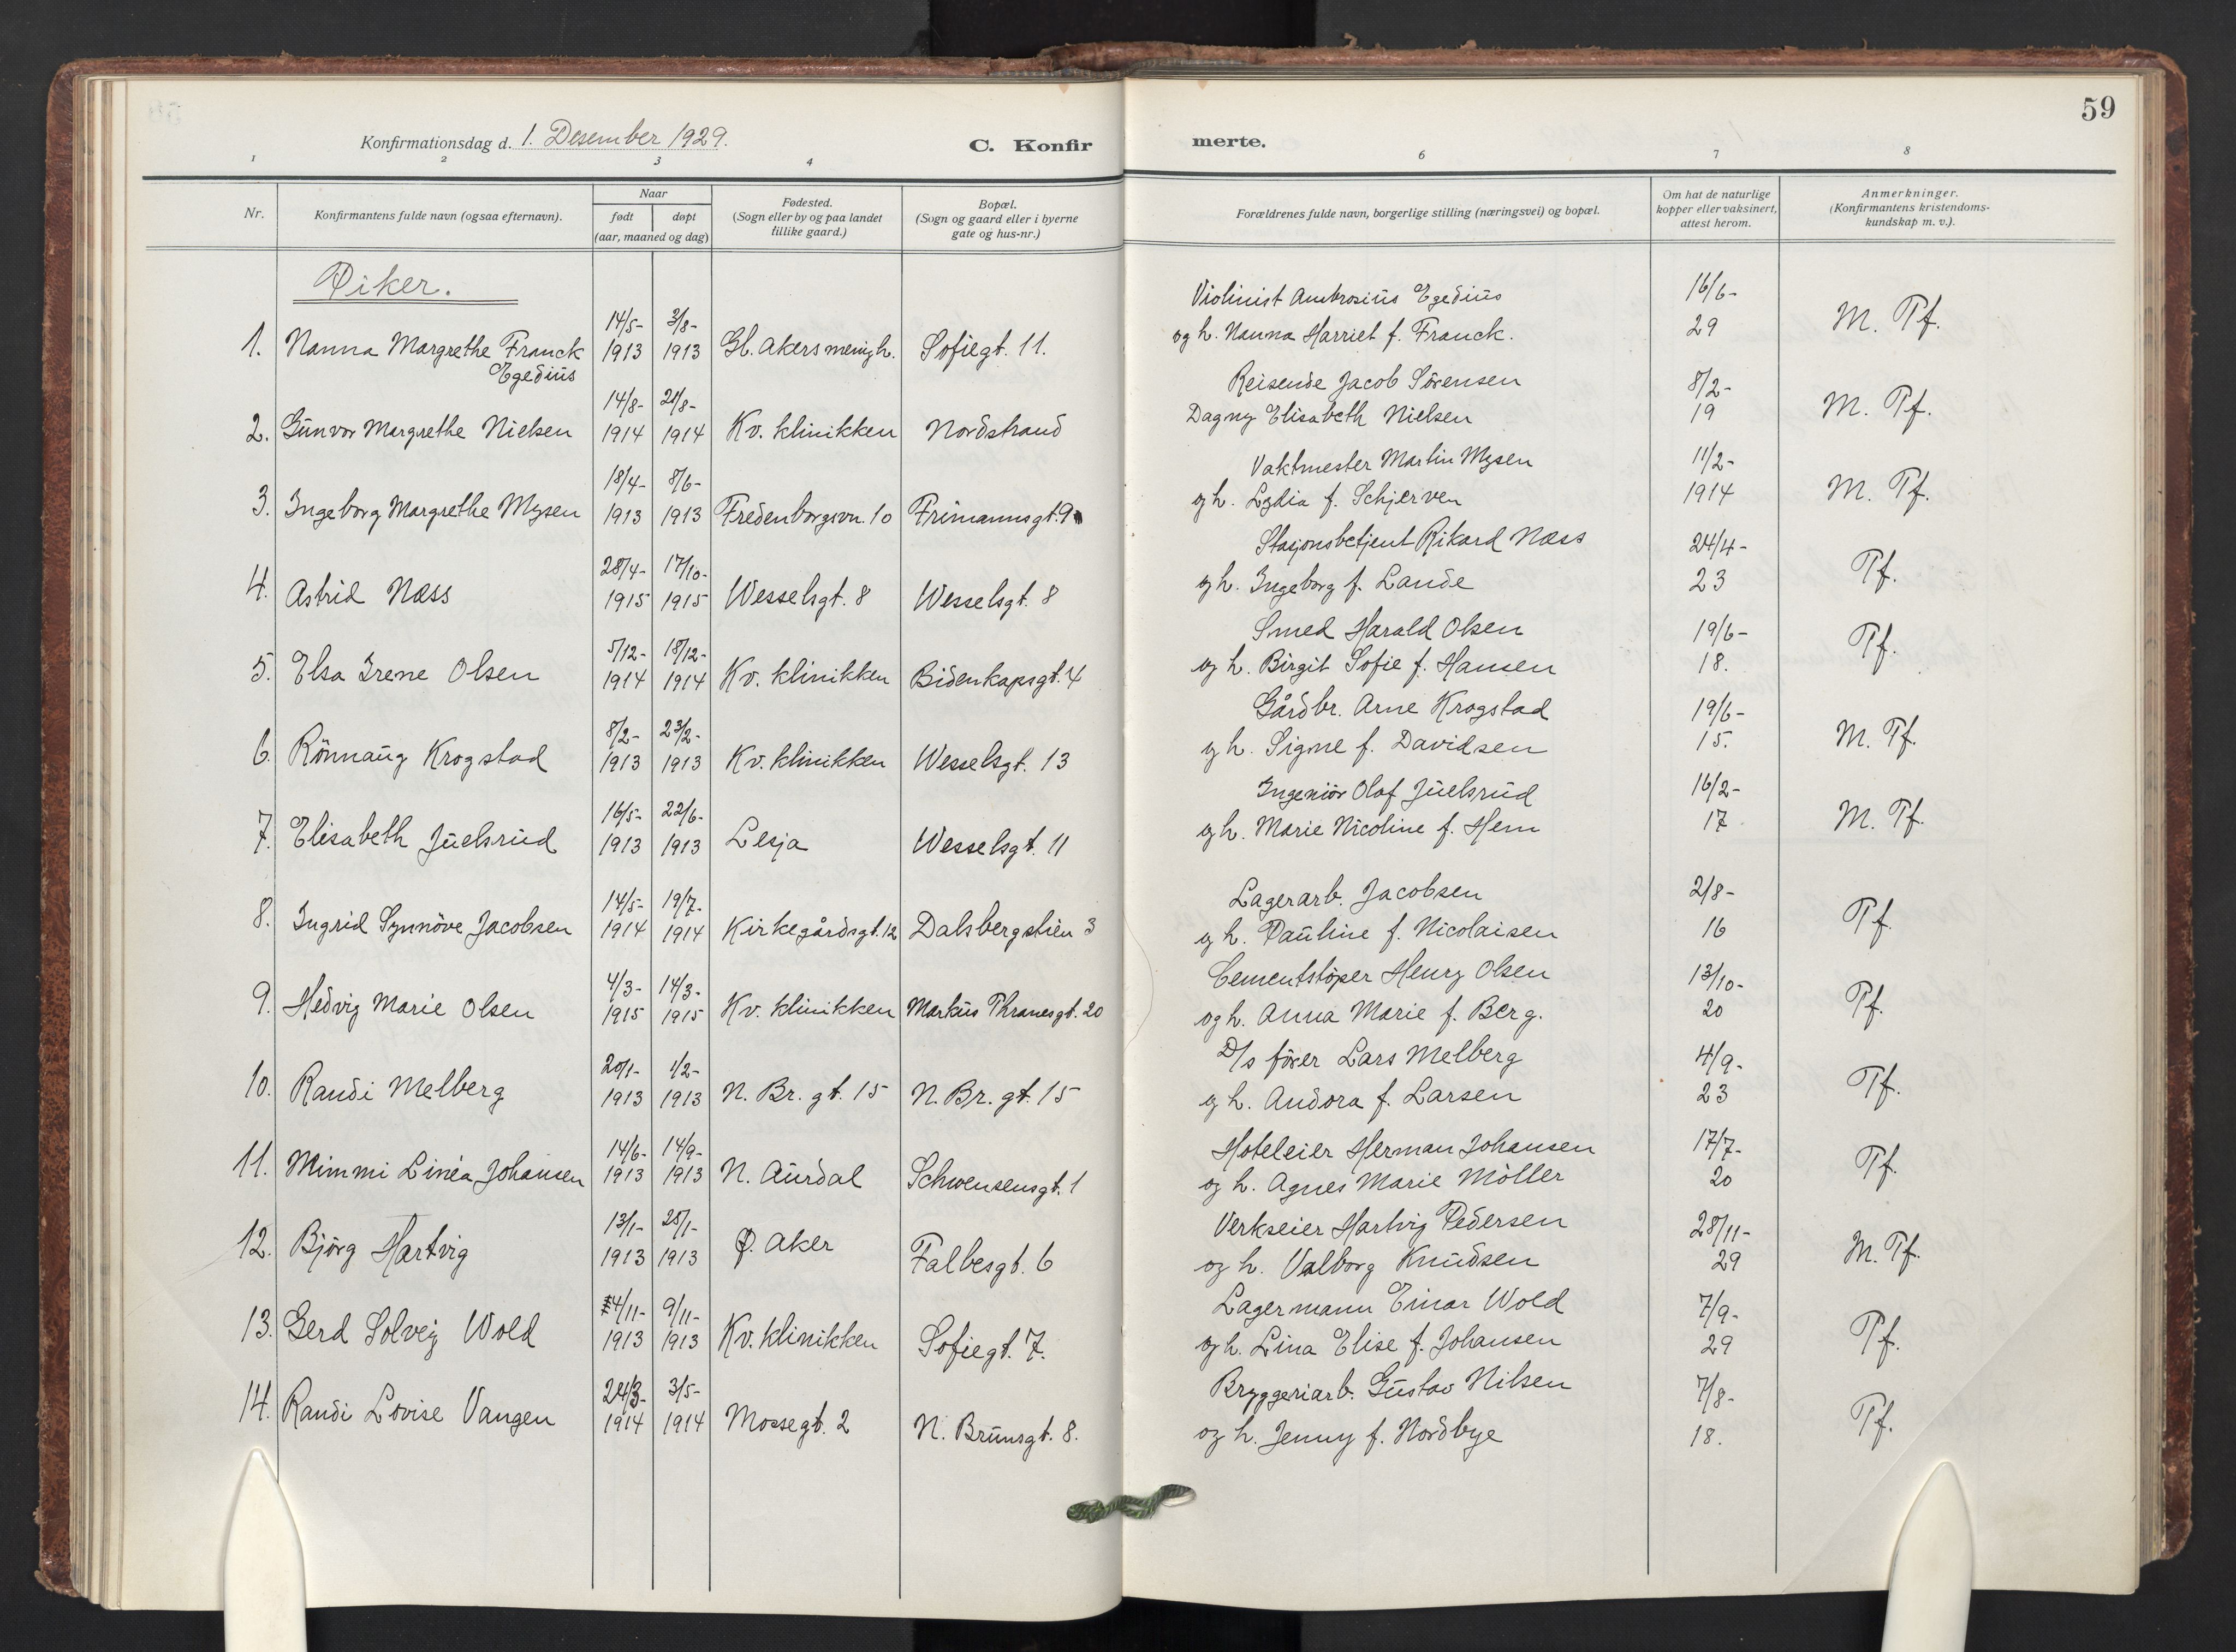 59
Konfirmationsdag d. 1. Desember 1929.
C. Konfir
merte.
1 2 3 4 6 7 8
Nr.
Konfirmantens fulde navn (ogsaa efternavn).
Naar
født døpt
(aar, maaned og dag)
Fødested.
(Sogn eller by og paa landet
tillike gaard.)
Bopæl.
(Sogn og gaard eller i byerne
gate og hus-nr.)
Forældrenes fulde navn, borgerlige stilling (næringsvei) og bopæl.
Om hat de naturlige
kopper eller vaksinert,
attest herom.
Anmerkninger.
(Konfirmantens kristendoms-
kundskap m. v.).
Piker.
14/5- 3/8- Violinist Ambrosius Egedius 16/6-
1. Nanna Margrethe Franck 1913 1913 Gl. Akers menigh. Sofiegt. 11. og h. Nanna Harriet f. Franck. 29 M. Pf.
Egedius
14/8- 21/8- Reisende Jacob Sörensen 8/2-
2. Gunvor Margrethe Nielsen 1914 1914 Kv. klinikken Nordstrand Dagny Elisabeth Nielsen 19 M. Pf.
18/4- 8/6- Vaktmester Martin Mysen 11/2-
3. Ingeborg Margrethe Mysen 1913 1913 Fredenborgsvn. 10 Frimannsgt. 9 og h. Lydia f. Schjerven 1914 M. Pf.
28/4- 17/10- Stasjonsbetjent Rikard Næss 24/4-
4. Astrid Næss 1915 1915 Wesselsgt. 8 Wesselsgt. 8 og h. Ingeborg f. Lande 23 Pf.
5/12- 18/12- Smed Harald Olsen 19/6-
5. Elsa Irene Olsen 1914 1914 Kv. klinikken Bidenkapsgt. 4 og h. Birgit Sofie f. Hansen 18. Pf.
8/2- 23/2- Gårdbr. Arne Krogstad 19/6-
6. Rönnaug Krogstad 1913 1913 Kv. klinikken Wesselsgt. 13 og h. Signe f. Davidsen 15. M. Pf.
16/5- 22/6- Ingeniör Olaf Juelsrud 16/2-
7. Elisabeth Juelsrud 1913 1913 Lesja Wesselsgt. 11 og h. Marie Nicoline f. Hem 17 M. Pf.
14/5- 19/7- Lagerarb. Jacobsen 2/8-
8. Ingrid Synnöve Jacobsen 1914 1914 Kirkegårdsgt. 12 Dalsbergstien 3 og h. Pauline f. Nicolaisen 16 Pf.
4/3- 14/3- Cementstöper Henry Olsen 13/10-
9. Hedvig Marie Olsen 1915 1915 Kv. klinikken Markus Thranesgt. 20 og h. Anna Marie f. Berg. 20 Pf.
20/1- 1/2- D/s förer Lars Melberg 4/9-
10. Randi Melberg 1913 1913 N. Br. gt. 15 N. Br. gt. 15 og h. Andora f. Larsen 23 Pf.
14/6- 14/9- Hoteleier Herman Johansen 17/7-
11. Mimmi Linéa Johansen 1913 1913 N. Aurdal Schwensensgt. 1 og h. Agnes Marie Möller 20 Pf.
13/1- 25/1- Verkseier Hartvig Pedersen 28/11-
12. Björg Hartvig 1913 1913 Ø. Aker Falbesgt. 6 og h. Valborg Knudsen 29 M. Pf.
4/11- 9/11- Lagermann Einar Wold 7/9-
13. Gerd Solveig Wold 1913 1913 Kv. klinikken Sofiegt. 7. og h. Lina Elise f. Johansen 29 Pf.
24/3- 3/5- Bryggeriarb. Gustav Nilsen 7/8-
14. Randi Lovise Vangen 1914 1914 Mossegt. 2 N. Brunsgt. 8. og h. Jenny f. Nordbye 18. Pf.